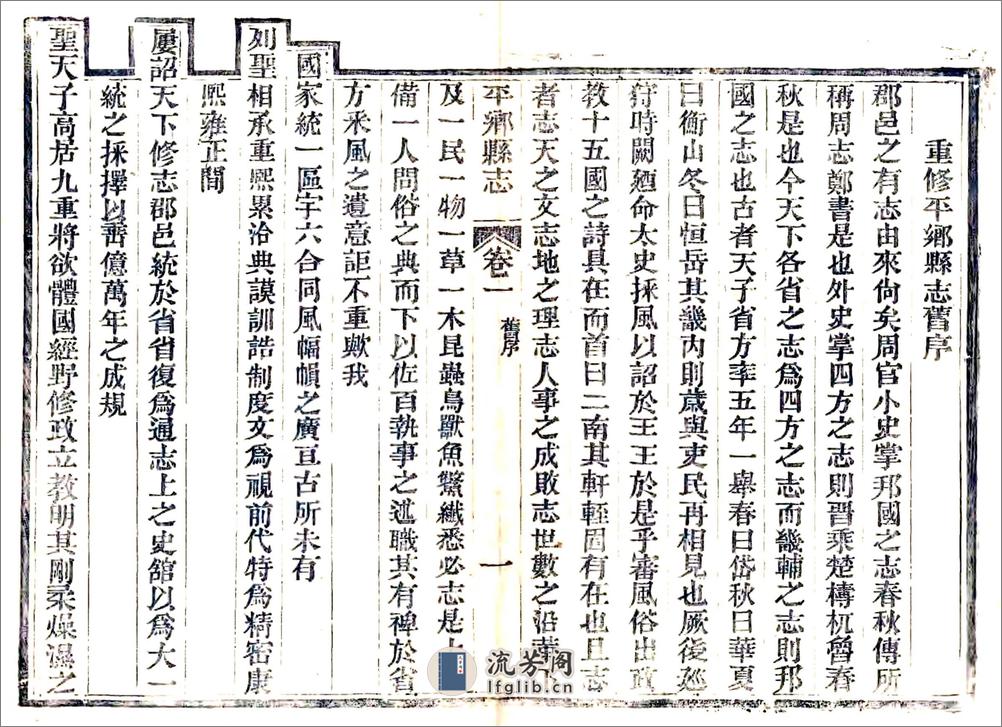 重修平鄉縣志舊序
郡邑之有志由來尙矣周官小史掌邦國之志春秋傳所
稱周志鄭書是也外史掌四方之志則晋乘楚檮杌魯春
秋是也今天下各省之志爲四方之志而畿輔之志則邦
國之志也古者天子省方率五年一舉春曰岱秋曰華夏
曰衡山冬曰恒岳其畿內則歲與吏民再相見也厥後廵
狩時闕廼命太史採風以詔於王王於是乎審風俗出政
教十五國之詩具在而首曰二南其軒輊固有在也且志
者志天之文志地之理志人事之成敗志世數之沿革
平鄉縣志 卷一 舊序 一
及一民一物一草一木昆蟲鳥獸魚鱉纖悉必志是上
備一人問俗之典而下以佐百執事之述職其有裨於省
方釆風之遺意詎不重歟我
國家統一區宇六合同風幅幀之廣亘古所未有
列聖相承重熙累洽典謨訓誥制度文爲視前代特爲精密康
熙雍正間
屢詔天下修志郡邑統於省省復爲通志上之史舘以爲大一
統之採擇以垂億萬年之成規
聖天子高居九重將欲體國經野修政立教明其剛柔燥濕之
流芳阁
lfglib.cn